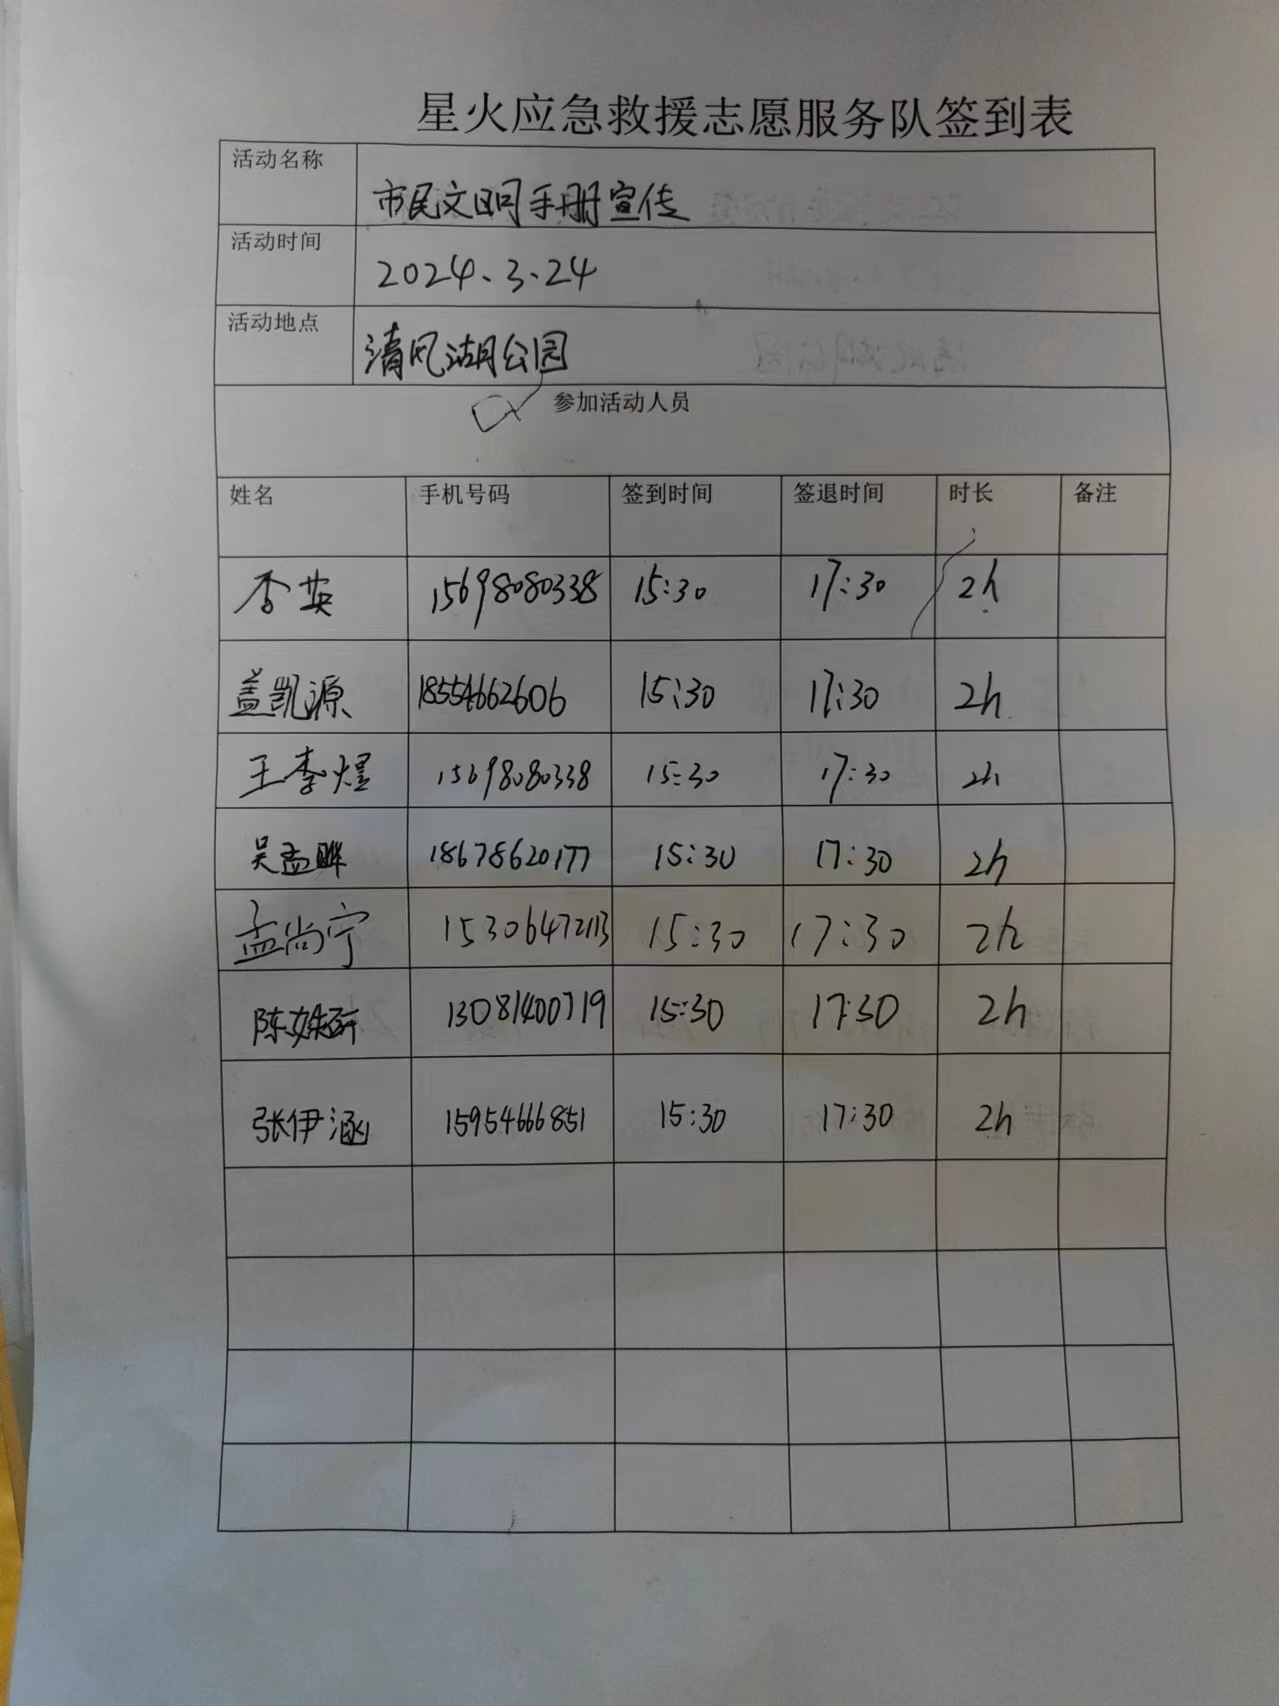 星火应急救援志愿服务队签到表
活动名称 市民文明手册宣传
活动时间 2024.3.24
活动地点 清风湖公园
参加活动人员
姓名 手机号码 签到时间 签退时间 时长 备注
李英 15698080338 15:30 17:30 2h
盖凯源 18554662606 15:30 17:30 2h
王李煜 15698080338 15:30 17:30 2h
吴孟晔 18678620177 15:30 17:30 2h
孟尚宁 15306472113 15:30 17:30 2h
陈姝妍 13081400719 15:30 17:30 2h
张伊涵 15954666851 15:30 17:30 2h